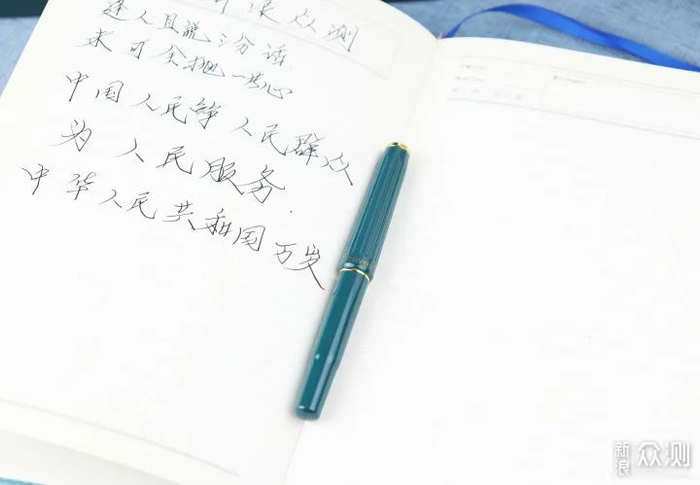 新浪众测
逢人且说三分话
未可全抛一片心
中国人民 人民群众
为人民服务.
中华人民共和国万岁
新浪众测